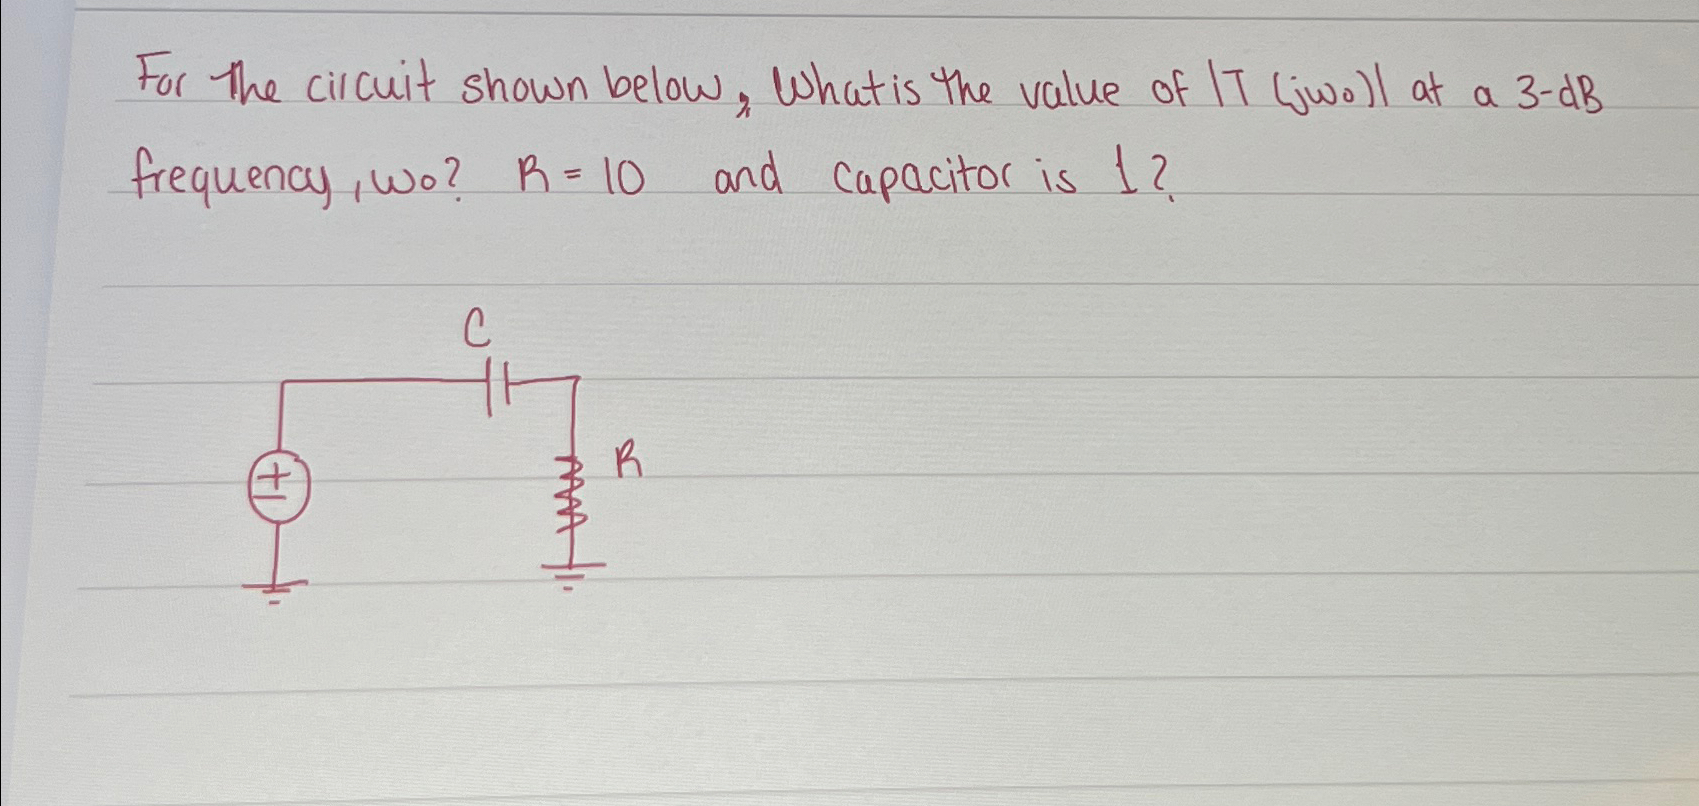 For the circuit shown below, What is the value of |T (jwo)| at a 3-dB
frequency, wo? R = 10 and capacitor is 1?
C
+
-
R